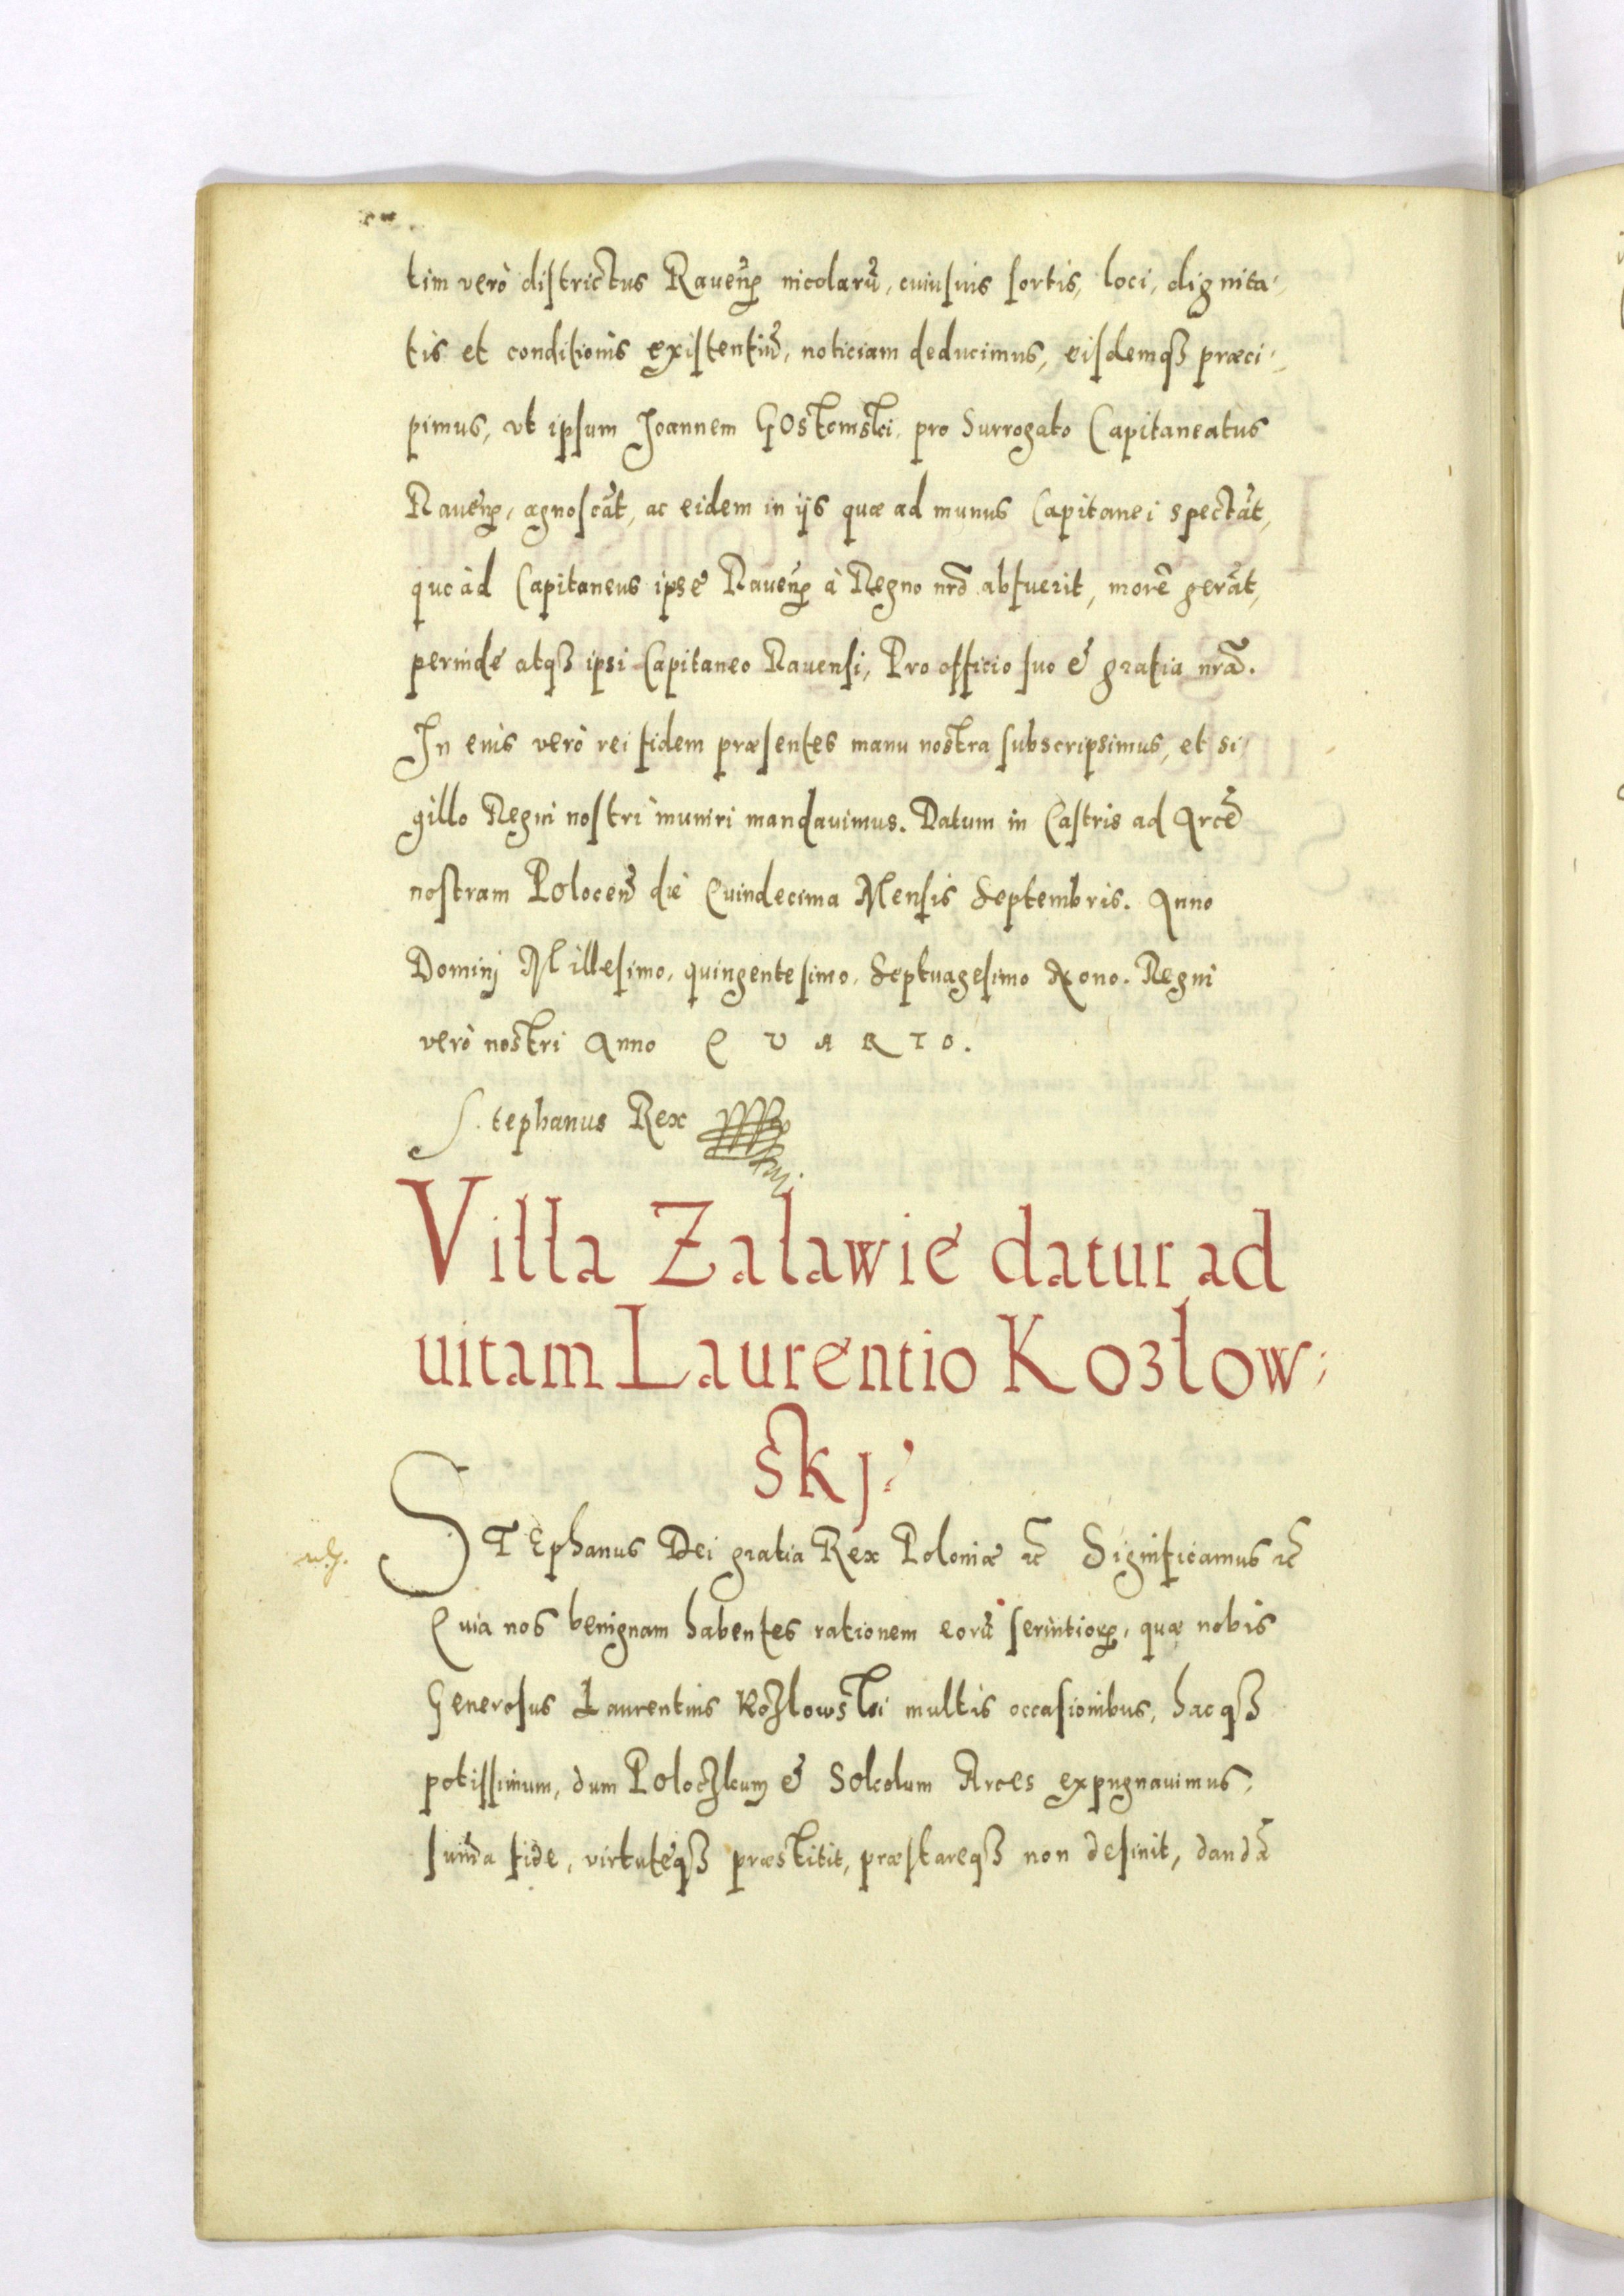 tim verò districtus Raueñ nicolarũ, cuiusuis sortis, loci, dignita-
tis et conditionis existentiũ, noticiam deducimus, eisdemqꝫ præci-
pimus, vt ipsum Joannem GOstomski pro Surrogato Capitaneatus
Raueñ, agnoscãt, ac eidem in ijs quæ ad munus Capitanei spectãt,
quoàd Capitaneus ipse Raueñ à Regno nrõ abfuerit, morẽ gerãt,
perinde atqꝫ ipsi Capitaneo Rauensi, Pro officio suo & gratia nrã.
In cuius verò rei fidem præsentes manu nostra subscripsimus, et si-
gillo Regni nostri muniri mandauimus. Datum in Castris ad Arcẽ
nostram Poloceñ die Quindecima Mensis Septembris. Anno
Dominj Millesimo, quingentesimo, Septuagesimo Nono. Regni
verò nostri Anno QVARTO.
Stephanus Rex
Villa Zalawie datur ad
uitam Laurentio Kozłow-
skj.
STEphanus Dei gratia Rex Poloniæ ꝛc̃ Significamus ꝛc̃
Quia nos benignam habentes rationem eorũ seruitiorꝝ, quæ nobis
Generosus Laurentius Kozlowski multis occasionibus, hacqꝫ
potissimum, dum Poloczkum & Sokolum Arces expugnauimus,
sum̃a fide, virtuteqꝫ præstitit, præstareqꝫ non desinit, dandã